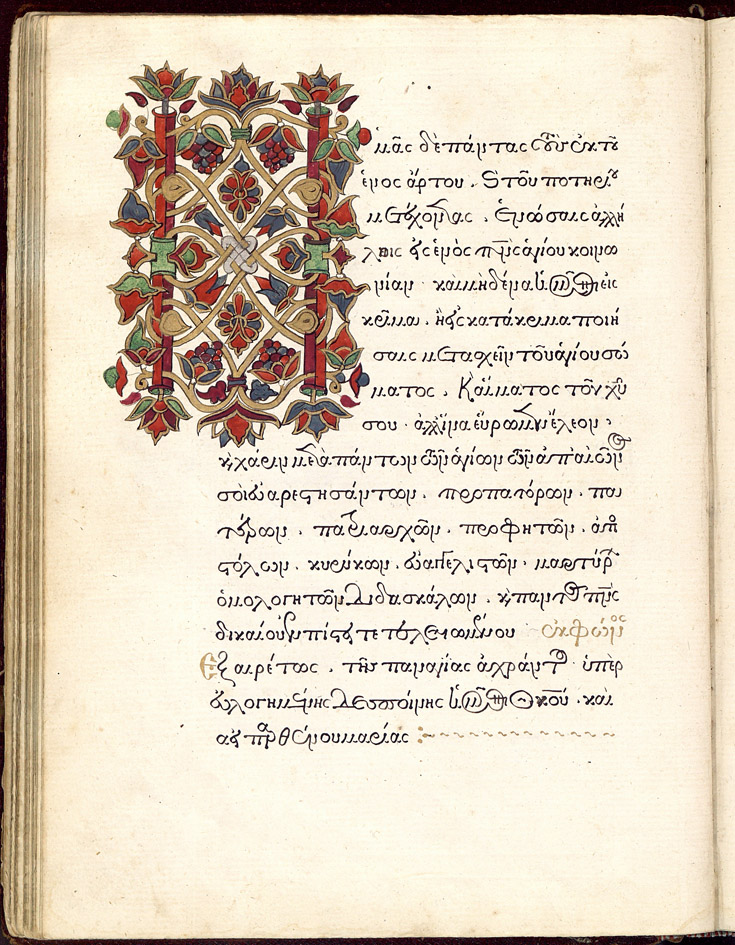 μᾶς δὲ πάντας τοὺς ἐκ τοῦ
ἑνὸς ἄρτου. καὶ τοῦ ποτηρίου
μετέχοντας. ἑνώσαις ἀλλή
λοις εἰς ἑνὸς πνς ἁγίου κοινω
νίαν. καὶ μηδένα ἡμῶν εἰς
κρῖμα. ἢ εἰς κατάκριμα ποιή
σαις μετασχεῖν τοῦ ἁγίου σώ
ματος. καὶ αἵματος τοῦ χυ
σου. ἀλλ' ἵνα εὕρωμεν ἔλεον,
καὶ χάριν μετὰ πάντων τῶν ἁγίων τῶν ἀπ' αἰῶν
σοι εὐαρεστησάντων. προπατόρων. πα
τέρων. πατριαρχῶν. προφητῶν. ἀπο
στόλων. κυρήκων. εὐαγγελιστῶν. μαρτύρ
ὁμολογητῶν διδασκάλων. καὶ παντὸς πνς
δικαίου ἐν πίστει τετελειωμένου ἐκφώνως
Ἐξαιρέτως. τῆς παναγίας ἀχράντου ὑπὲρ
εὐλογημένης Δεσποίνης ἡμῶν Θεοτόκου. καὶ
ἀεὶ παρθένου μαρίας